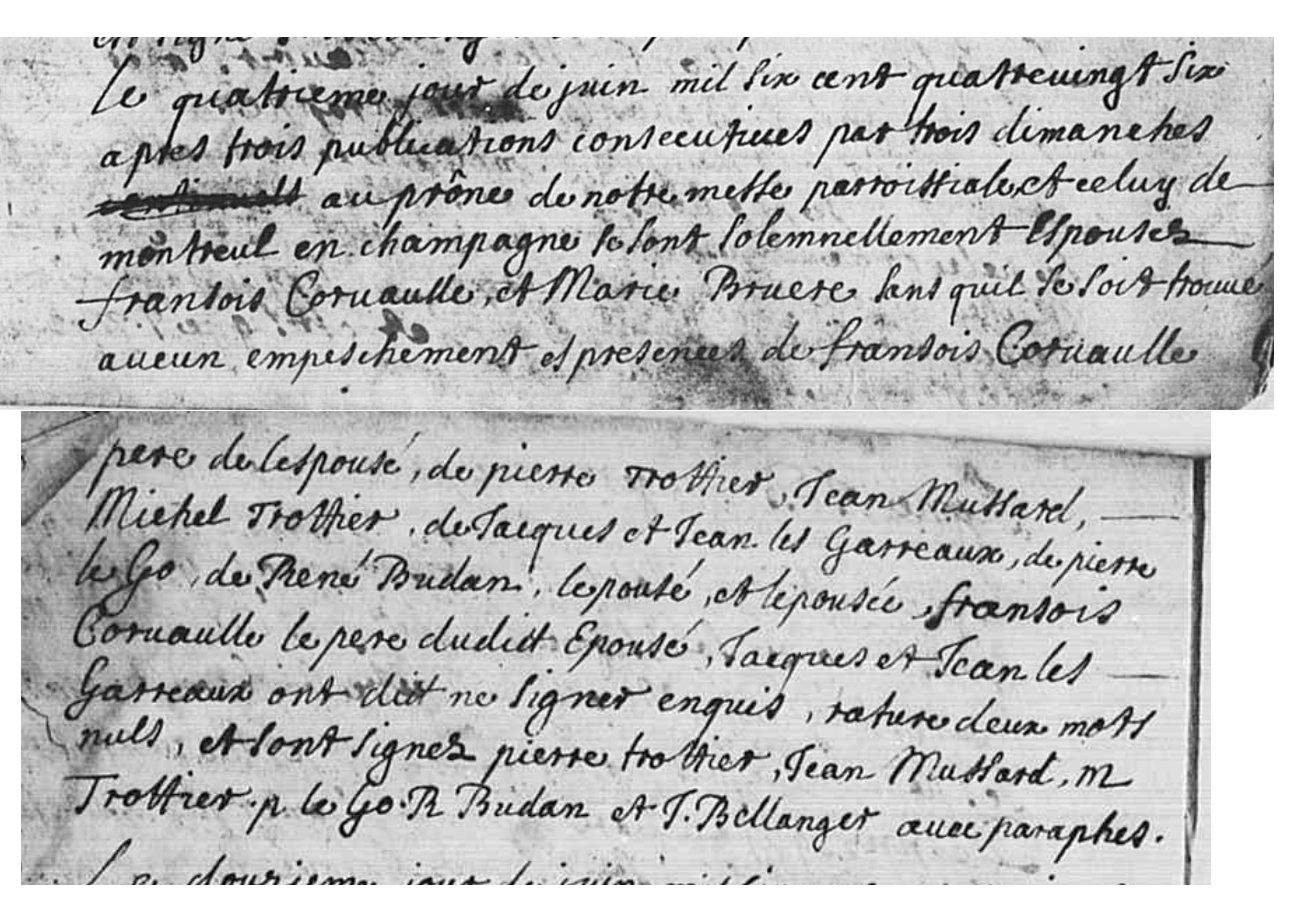 le quatrieme jour de juin mil six cent quatrevingt six
apres trois publications consecutives par trois dimanches
au prône de notre messe parroissiale et celuy de
montreul en champagne se sont solemnellement Espousez
fransois Coruaulle, et Marie Bruere sans quil se soit trouue
aucun empeschement es presences de fransois Coruaulle
pere de lespousé, de pierre Trottier, Jean Mussard,
Michel Trottier, de Jacques et Jean les Garreaux, de pierre
le Go, de René Budan, lepousé, et lepousée, fransois
Coruaulle le pere dudict Epousé, Jacques et Jean les
Garreaux ont dict ne signer enquis, rature deux mots
nuls, et sont signez pierre trottier, Jean Mussard, m
Trottier. p le Go. R Budan et J. Bellanger auec paraphes.